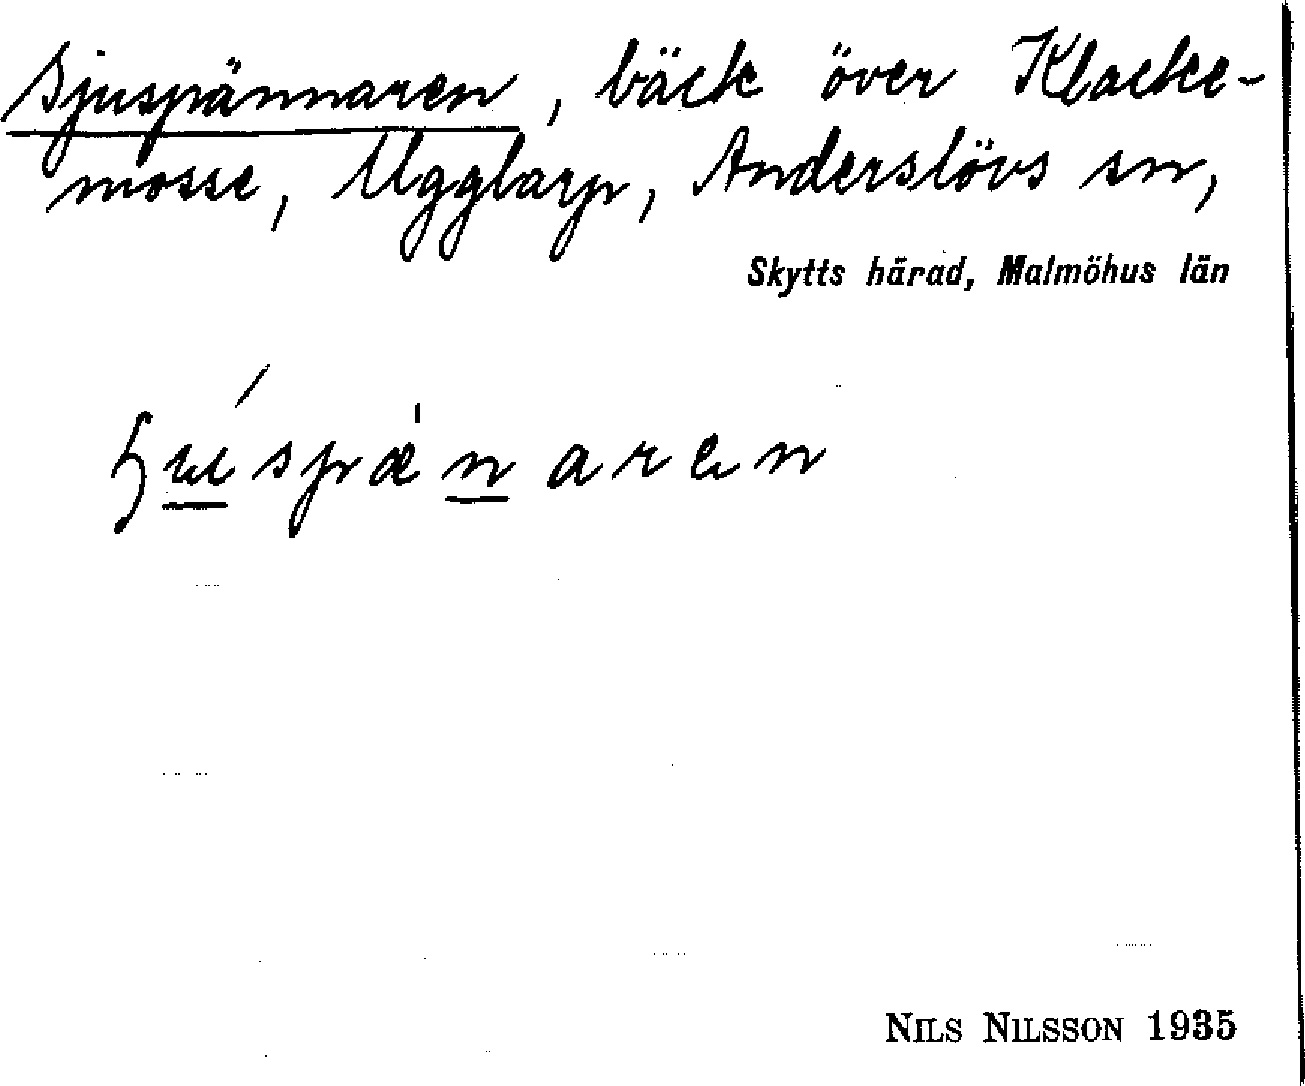 Sjuspännaren, bäck över Klacke-
mosse, Ugglarp, Anderslövs sn,
Skytts härad, Malmöhus län
ɧú̲spæ̍n̲aren
NILS NILSSON 1935